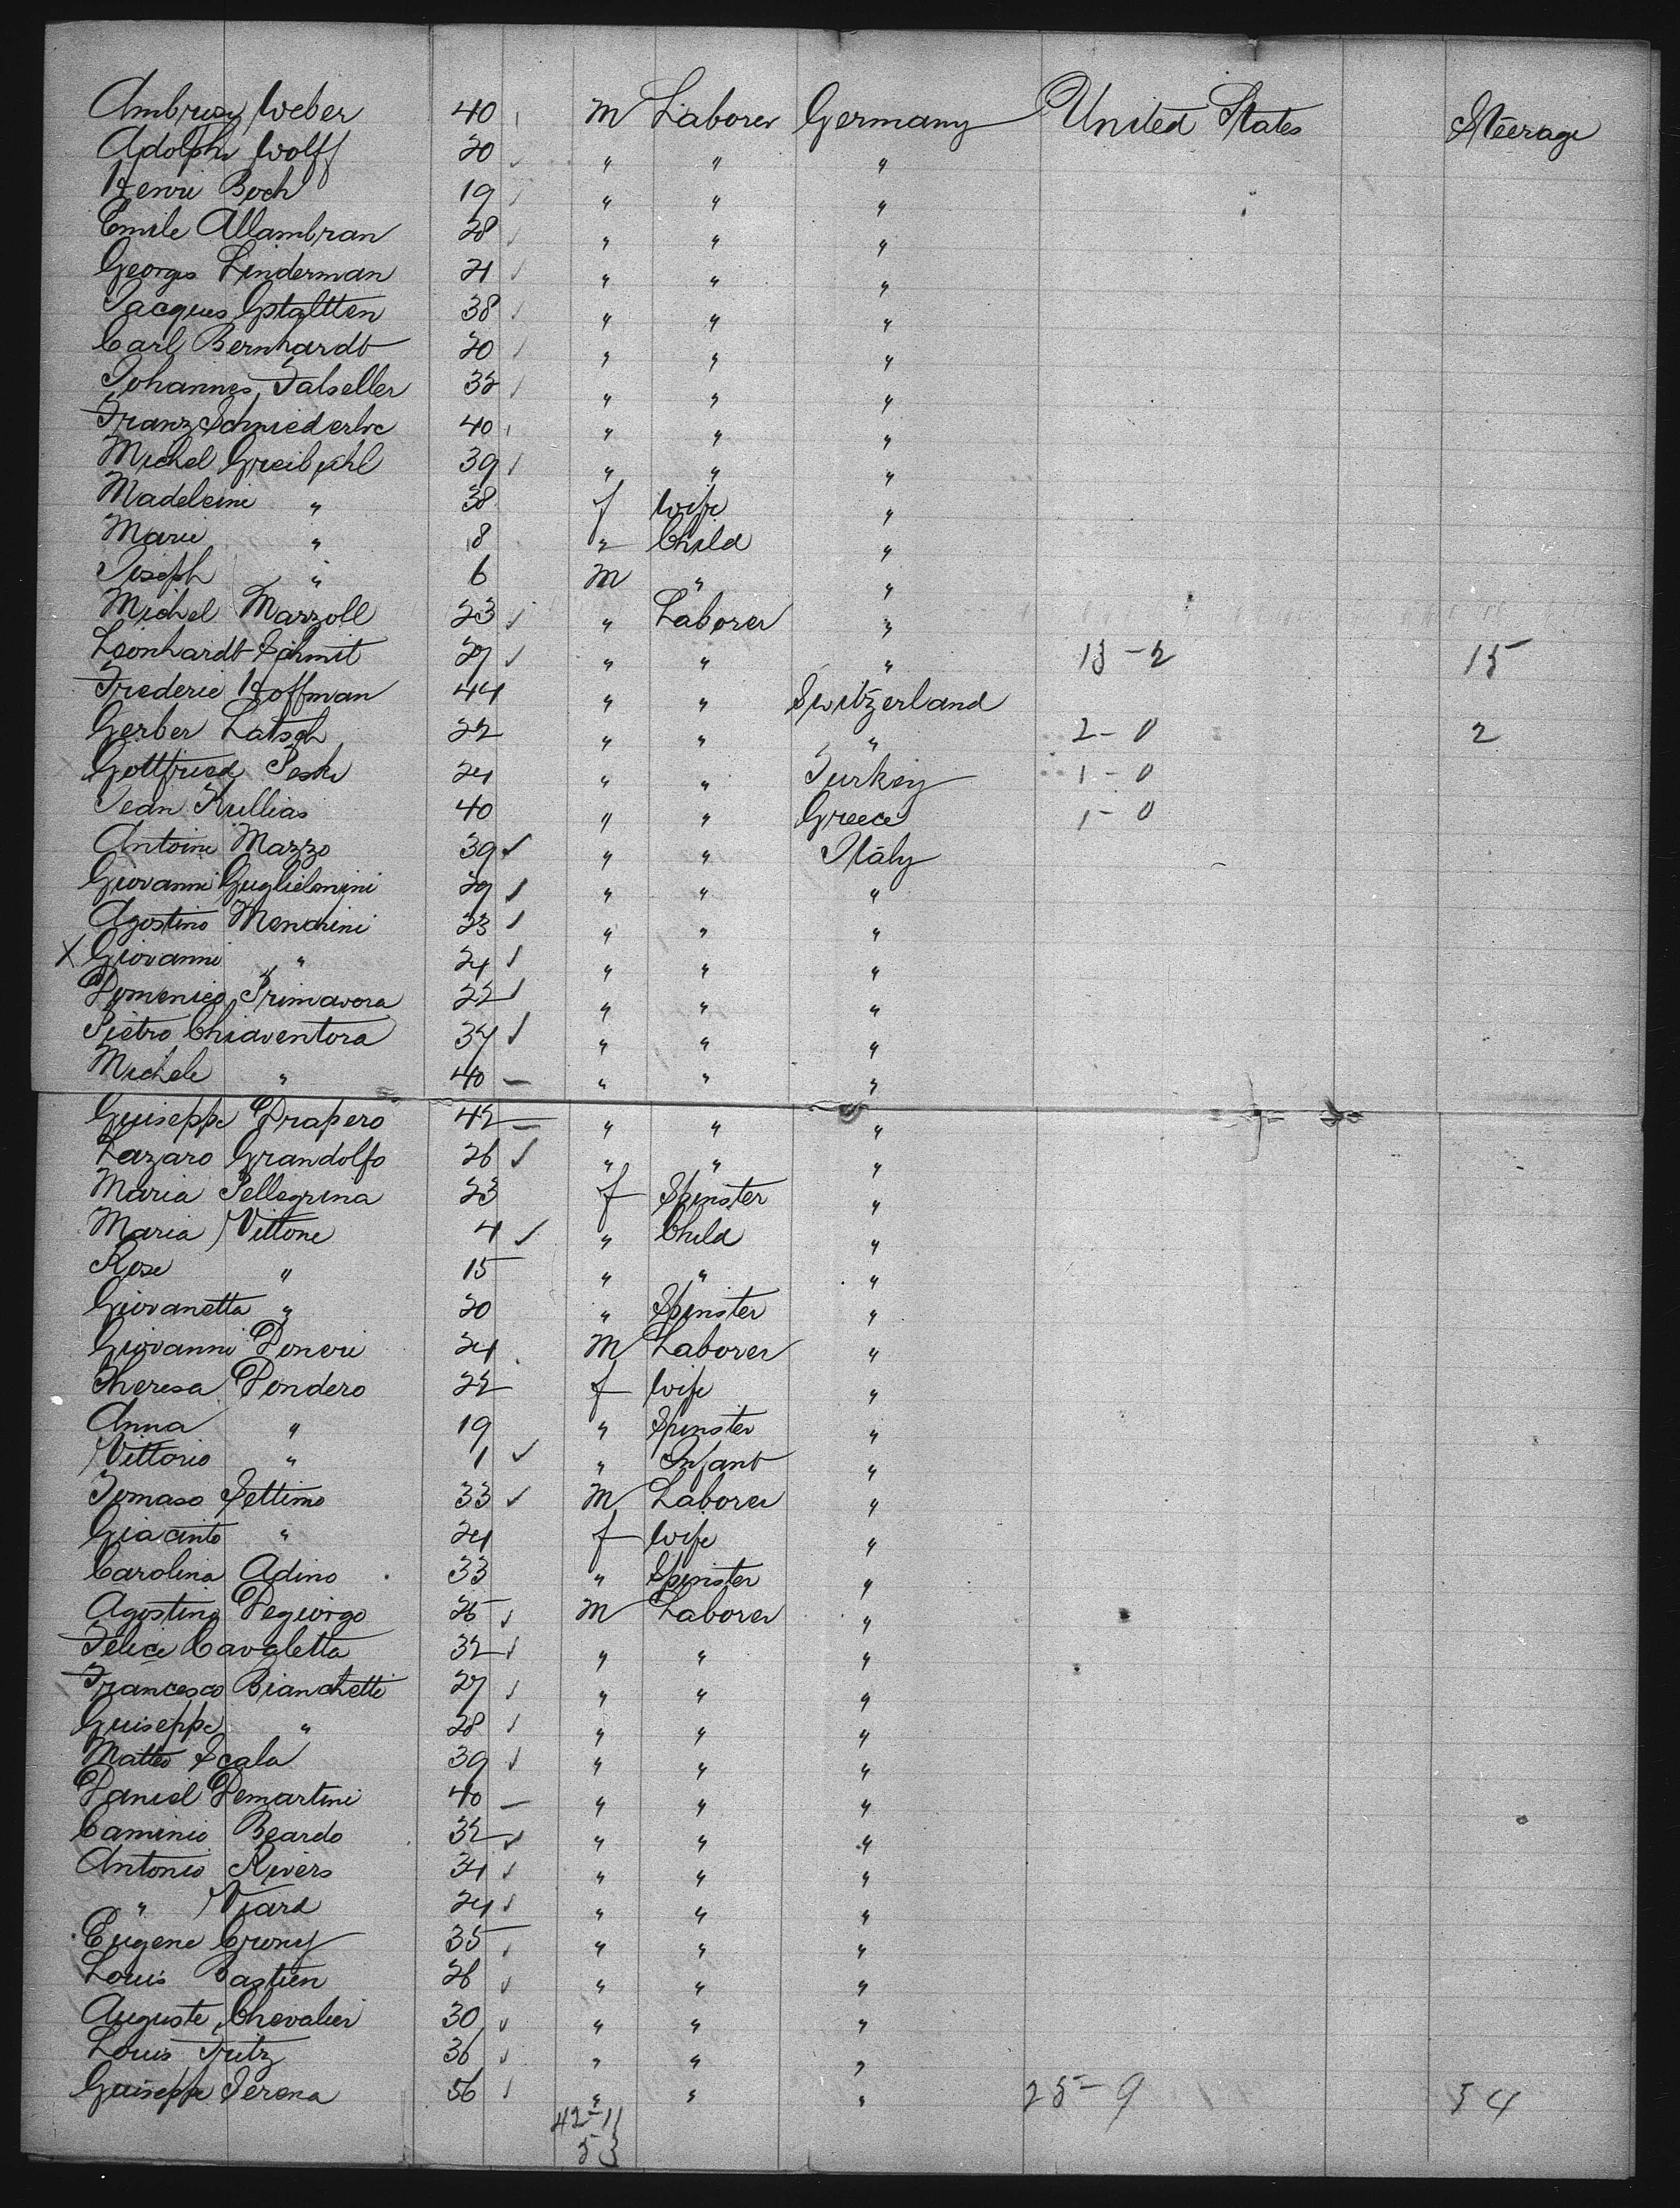 Ambrosy Weber 40 M Laborer Germany United States Steerage
Adolphe Wolff 20 " " "
Henri Boch 19 " " "
Emile Allambran 28 " " "
Georges Linderman 21 " " "
Jacques Gstaltten 38 " " "
Carl Bernhardt 20 " " "
Johannes Falseller 32 " " "
Franz 40 " " "
Michel Greibühl 39 " " "
Madeleine " 38 f Wife "
Marie " 8 " Child "
Joseph " 6 M " "
Michel Marzoll 23 " Laborer "
Leonhardt Schmit 27 " " " 13-2 15
Frederic Hoffman 44 " " Switzerland
Gerber Latsch 22 " " " 2-0 2
Gottfried 24 " " Turkey 1-0
Jean Kullias 40 " " Greece 1-0
Antoine Mazzo 39 ✓ " " Italy
Giovanni Guglielmini 29 ✓ " " "
Agostino Menchini 23 ✓ " " "
X Giovanni " 24 ✓ " " "
Domenico Primavora 22 ✓ " " "
Pietro Chiaventora 37 ✓ " " "
Michele " 40 – " " "
Guiseppe Drapero 42 – " " "
Lazaro Grandolfo 26 ✓ " " "
Maria Pellegrina 23 f Spinster "
Maria Vittone 4 ✓ " Child "
Rose " 15 " " "
Giovanetta " 20 " Spinster "
Giovanni Doneri 24 M Laborer "
Theresa Dondero 22 f Wife "
Anna " 19 " Spinster "
Vittorio " 1 ✓ " Infant "
Tomaso Settimo 33 ✓ M Laborer "
Giacinto " 24 f Wife "
Carolina Adino 33 " Spinster "
Agostino Degiorgo 25 ✓ M Laborer "
Felice Cavaletta 32 ✓ " " "
Francesco Bianchetti 27 ✓ " " "
Guiseppe " 28 ✓ " " "
Matteo Scala 39 ✓ " " "
Daniel Demartini 40 – " " "
Caminio Beardo 32 ✓ " " "
Antonio Rivers 34 ✓ " " "
" Viard 24 ✓ " " "
Eugene Crony 35 ✓ " " "
Louis Bastien 26 ✓ " " "
Auguste Chevalier 30 ✓ " " "
Louis Fritz 36 ✓ " " "
Guiseppe Serena 56 ✓ " " " 25-9 34
42-11
53